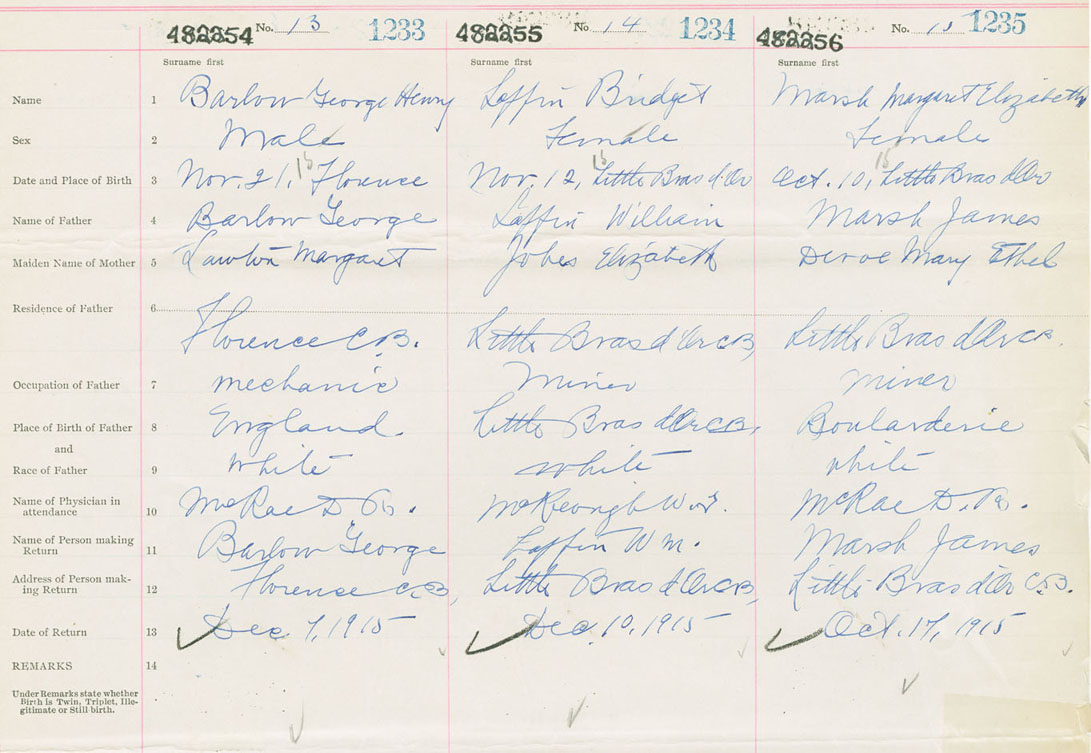 482254 No. 13 1233 482255 No. 14 1234 482256 No. 15 1235
Surname first Surname first Surname first
Name 1 Barlow George Henry Laffin Bridget Marsh Margaret Elizabeth
Sex 2 Male Female Female
Date and Place of Birth 3 Nov. 21, 15 Florence Nov. 12, 15 Little Bras d'Or Oct. 10, 15 Little Bras d'Or
Name of Father 4 Barlow George Laffin William Marsh James
Maiden Name of Mother 5 Lawton Margaret Jobes Elizabeth Devoe Mary Ethel
Residence of Father 6
Florence C.B. Little Bras d'Or C B, Little Bras d'Or C B.
Occupation of Father 7 mechanic Miner miner
Place of Birth of Father 8 England. Little Bras d'Or C B, Boularderie
and
Race of Father 9 White White white
Name of Physician in
attendance 10 McRae D. McKeough W. McRae D.
Name of Person making
Return 11 Barlow George Laffin Wm. Marsh James
Address of Person mak-
ing Return 12 Florence C.B, Little Bras d'Or C B, Little Bras d'Or C.B.
Date of Return 13 Dec 7, 1915 Dec. 10, 1915 Oct. 17, 1915
REMARKS 14
Under Remarks state whether
Birth is Twin, Triplet, Ille-
gitimate or Still-birth.